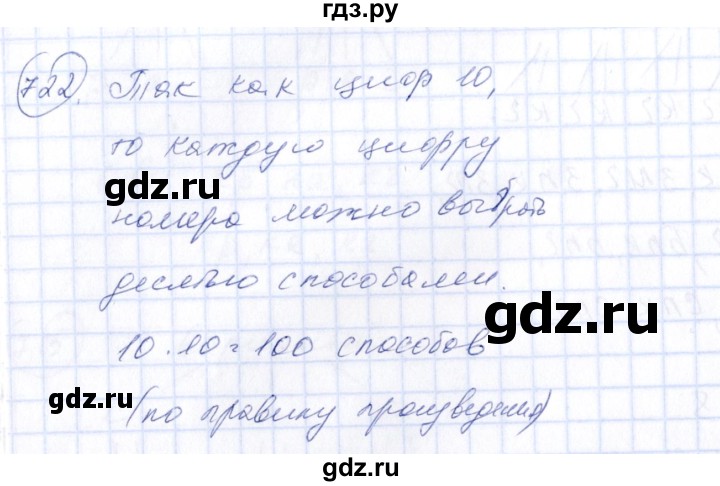 гдз.ру
722. Так как цифр 10,
то каждую цифру
gdz.ru
номера можно выбрать
десятью способами.
gdz.ru
10 · 10 = 100 способов
gdz.ru
(по правилу произведения)
gdz.ru